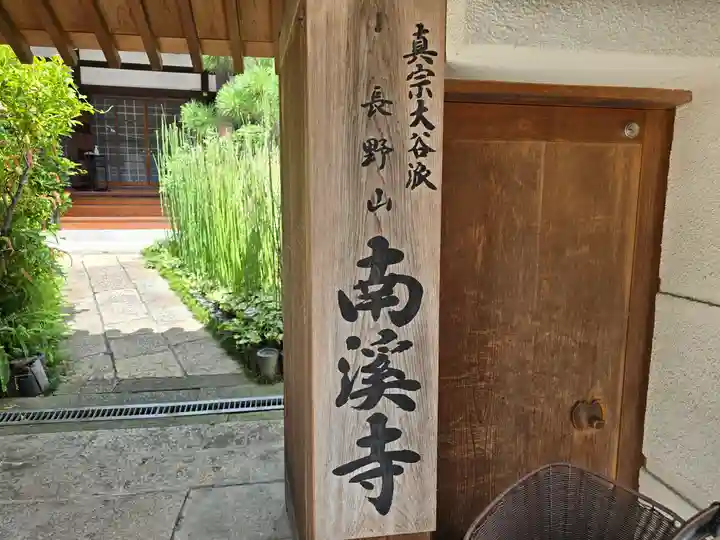 真宗大谷派
長野山
南溪寺